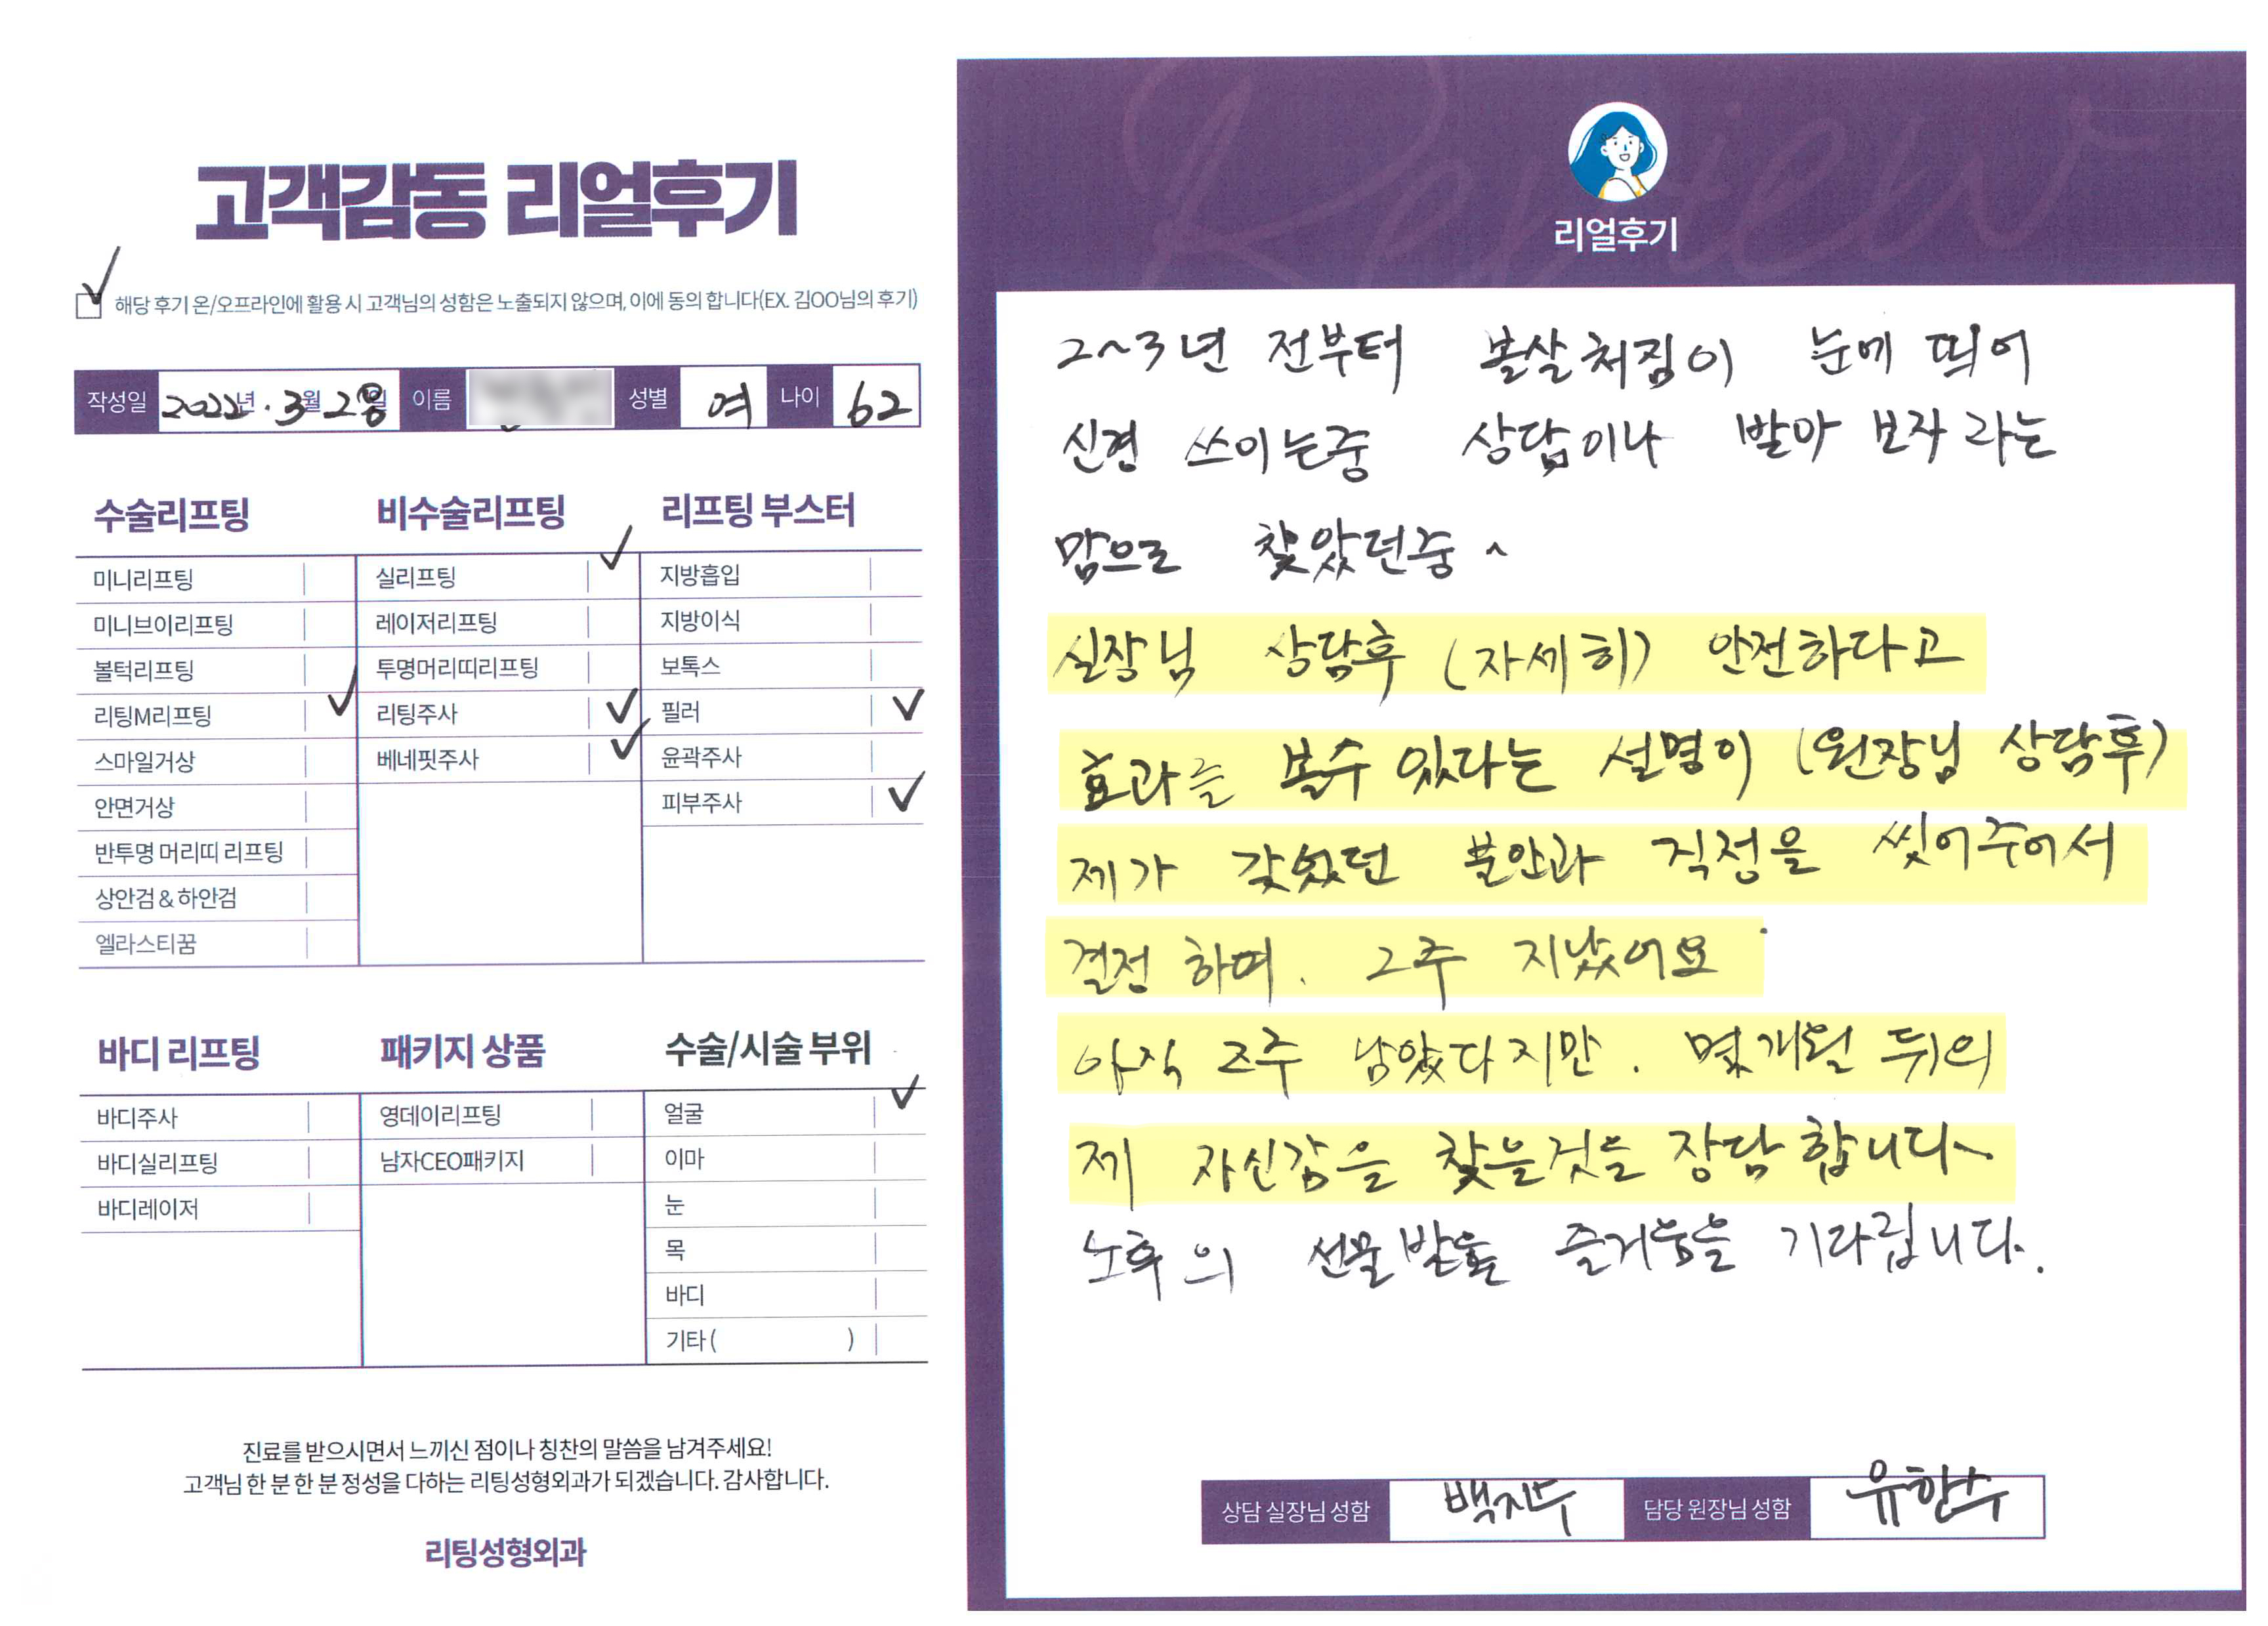 고객감동 리얼후기
해당 후기 온/오프라인에 활용 시 고객님의 성함은 노출되지 않으며, 이에 동의 합니다(EX. 김OO님의 후기)
작성일 2022년. 3월 28일 이름 성별 여 나이 62
수술리프팅
미니리프팅
미니브이리프팅
볼턱리프팅
리팅M리프팅
스마일거상
안면거상
반투명 머리띠 리프팅
상안검 & 하안검
엘라스티꿈
비수술리프팅
실리프팅
레이저리프팅
투명머리띠리프팅
리팅주사
베네핏주사
리프팅 부스터
지방흡입
지방이식
보톡스
필러
윤곽주사
피부주사
바디 리프팅
바디주사
바디실리프팅
바디레이저
패키지 상품
영데이리프팅
남자CEO패키지
수술/시술 부위
얼굴
이마
눈
목
바디
기타 ( )
진료를 받으시면서 느끼신 점이나 칭찬의 말씀을 남겨주세요!
고객님 한 분 한 분 정성을 다하는 리팅성형외과가 되겠습니다. 감사합니다.
리팅성형외과
Review
리얼후기
2~3년 전부터 볼살처짐이 눈에 띄어
신경 쓰이는중 상담이나 받아 보자 라는
맘으로 찾았던중
실장님 상담후 (자세히) 안전하다고
효과를 볼수 있다는 설명이 (원장님 상담후)
제가 갖었던 불안과 걱정을 씻어주어서
결정 하며. 2주 지났어요
아직 2주 남았다지만. 몇개월 뒤의
제 자신감을 찾을것을 장담합니다~
노후의 선물받을 즐거움을 기다립니다.
상담 실장님 성함 담당 원장님 성함 유한수